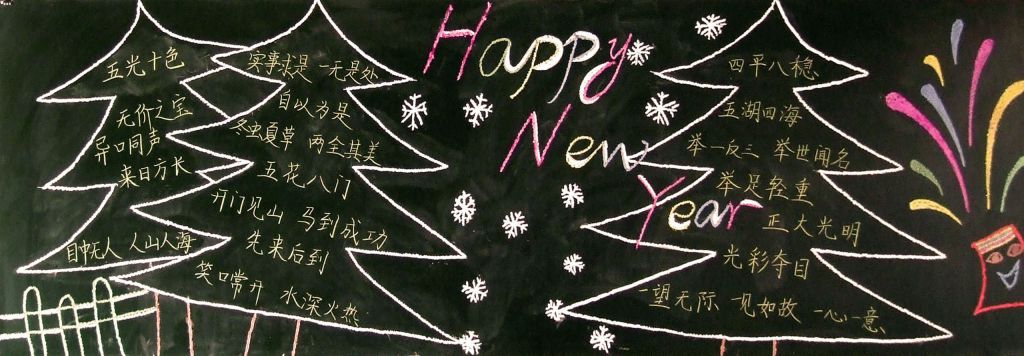 五光十色
无价之宝
异口同声
来日方长
目中无人 人山人海
实事求是 一无是处
自以为是
冬虫夏草 两全其美
五花八门
开门见山 马到成功
先来后到
笑口常开 水深火热
Happy
New
Year
四平八稳
五湖四海
举一反三 举世闻名
举足轻重
正大光明
光彩夺目
一望无际 见如故 一心一意